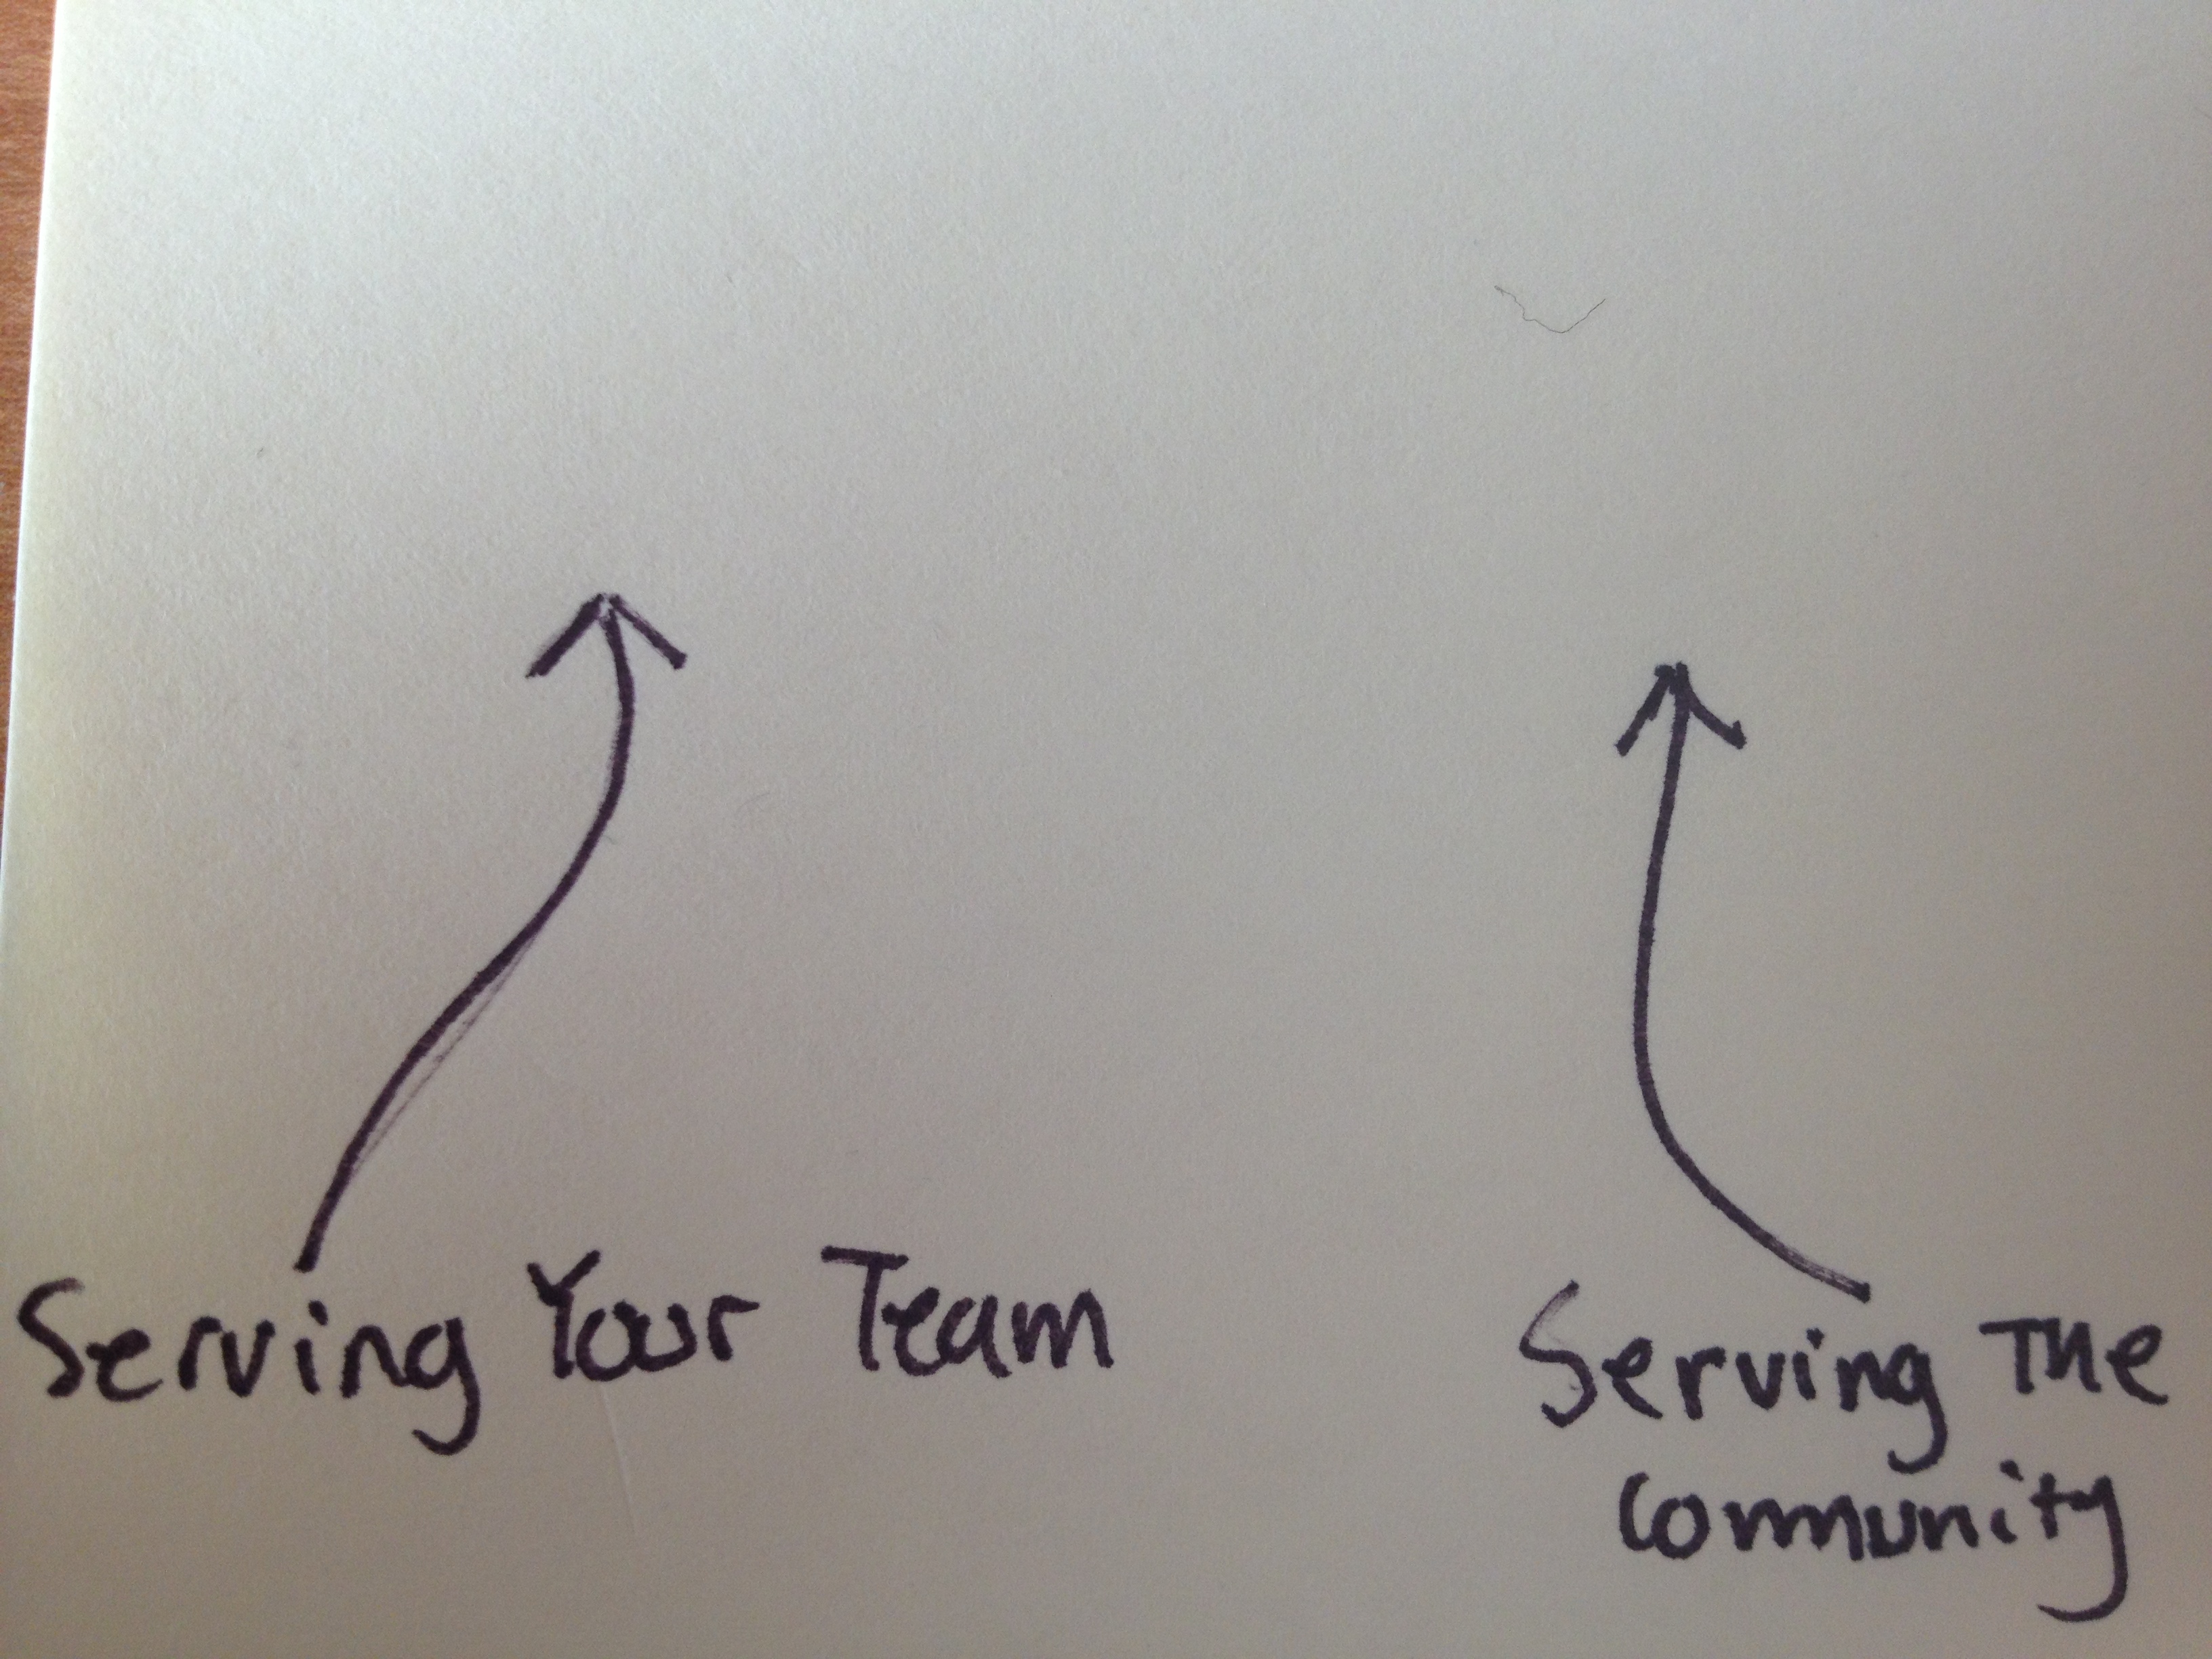 Serving Your Team
Serving The
Community